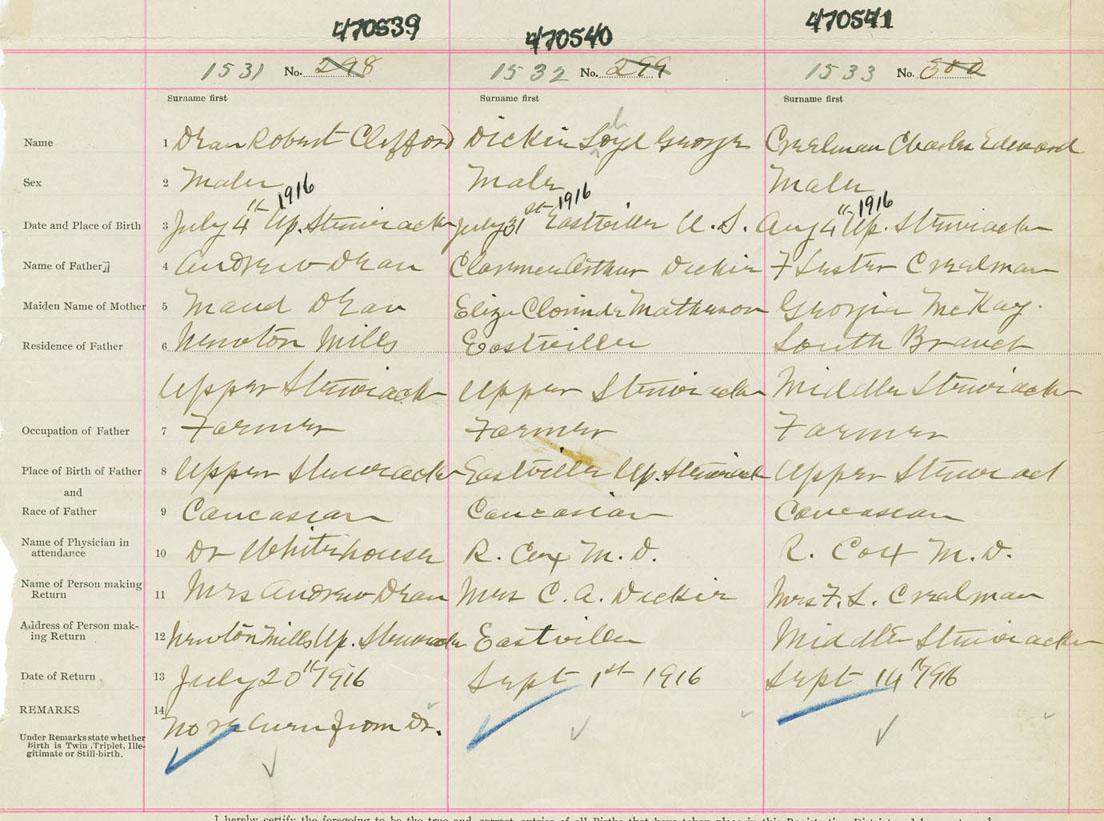 470539 470540 470541
1531 No. 298 1532 No. 299 1533 No. 300
Surname first Surname first Surname first
Name 1 Dean Robert Clifford Dickie Loyd George Creelman Charles Edward
Sex 2 Male Male Male
Date and Place of Birth 3 July 4th 1916 Up. Stewiacke July 31st 1916 Eastville U. S. Aug 4th 1916 Up. Stewiacke
Name of Father 4 Andrew Dean Clarence Arthur Dickie F Luster Creelman
Maiden Name of Mother 5 Maud Dean Eliza Clorinda Matheson Georgia McKay.
Residence of Father 6 Newton Mills Eastville South Branch
Upper Stewiacke Upper Stewiacke Middle Stewiacke
Occupation of Father 7 Farmer Farmer Farmer
Place of Birth of Father 8 Upper Stewiacke Eastville Up. Stewiack Upper Stewiack
and
Race of Father 9 Caucasian Caucasian Caucasian
Name of Physician in
attendance 10 Dr Whitehouse R. Cox M. D. R. Cox M. D.
Name of Person making
Return 11 Mrs Andrew Dean Mrs C. A. Dickie Mrs F. L. Creelman
Address of Person mak-
ing Return 12 Newton Mills Up. Stewiacke Eastville Middle Stewiacke
Date of Return 13 July 20th 1916 Sept 1st 1916 Sept 14th 1916
REMARKS 14 No return from Dr.
Under Remarks state whether
Birth is Twin, Triplet, Ille-
gitimate or Still-birth.
I hereby certify the foregoing to be the true and correct entries of all Births that have taken place in this Registration District